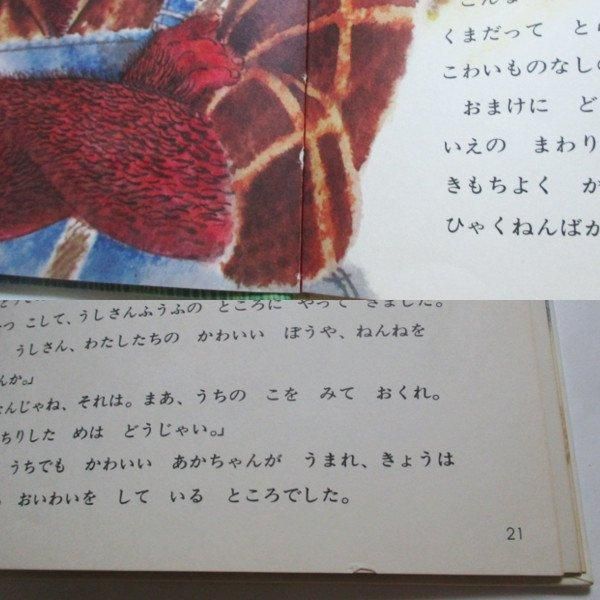 こんな
くまだって
こわいものなしの
おまけに ど
いえの まわり
きもちよく か
ひゃくねんばか
こして、うしさんふうふの ところに やって きました。
うしさん、わたしたちの かわいい ぼうや、ねんねを
んか。」
んじゃね、それは。まあ、うちの こを みて おくれ。
ちりした めは どうじゃい。」
うちでも かわいい あかちゃんが うまれ、きょうは
おいわいを して いる ところでした。
21